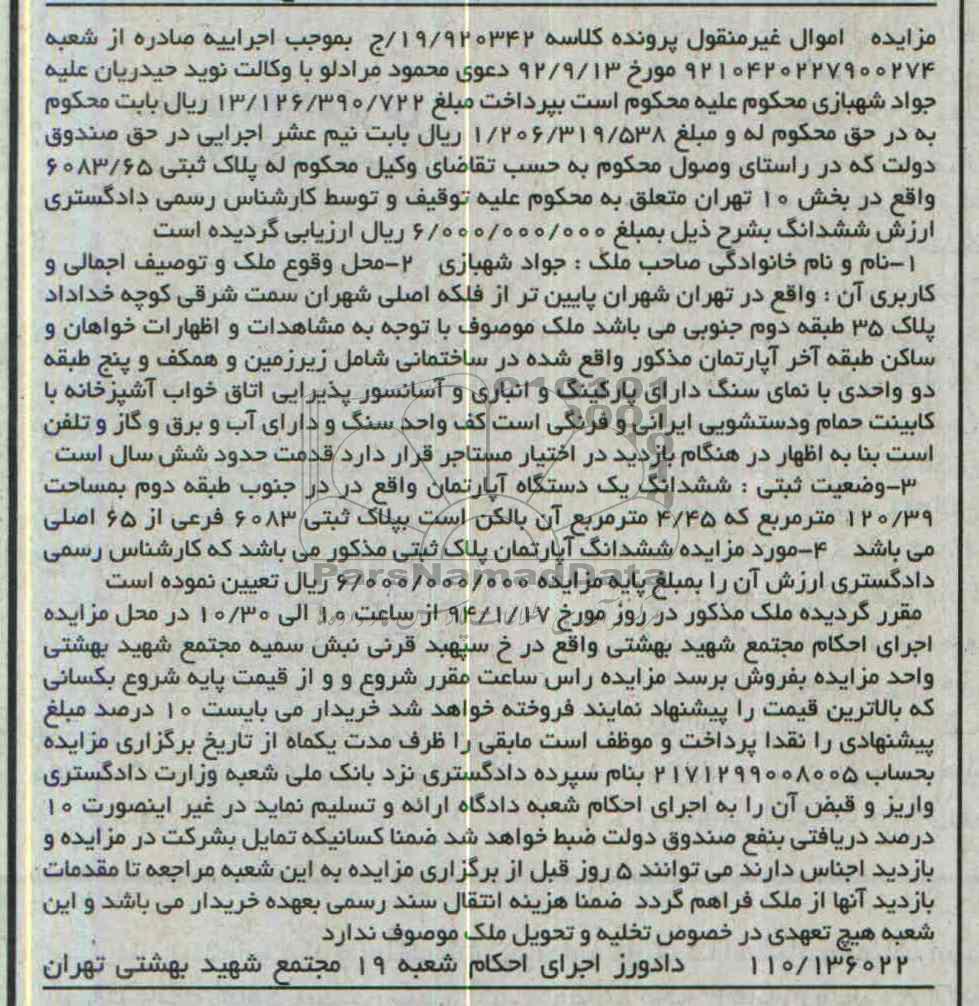 مزایده اموال غیرمنقول پرونده کلاسه ۱۹/۹۲۰۳۴۲/ج بموجب اجراییه صادره از شعبه
۹۲۱۰۴۲۰۲۲۷۹۰۰۲۷۴ مورخ ۹۲/۹/۱۳ دعوی محمود مرادلو با وکالت نوید حیدریان علیه
جواد شهبازی محکوم علیه محکوم است بپرداخت مبلغ ۱۳/۱۲۶/۳۹۰/۷۲۲ ریال بابت محکوم
به در حق محکوم له و مبلغ ۱/۲۰۶/۳۱۹/۵۳۸ ریال بابت نیم عشر اجرایی در حق صندوق
دولت که در راستای وصول محکوم به حسب تقاضای وکیل محکوم له پلاک ثبتی ۶۰۸۳/۶۵
واقع در بخش ۱۰ تهران متعلق به محکوم علیه توقیف و توسط کارشناس رسمی دادگستری
ارزش ششدانگ بشرح ذیل بمبلغ ۶/۰۰۰/۰۰۰/۰۰۰ ریال ارزیابی گردیده است
۱-نام و نام خانوادگی صاحب ملک : جواد شهبازی ۲-محل وقوع ملک و توصیف اجمالی و
کاربری آن : واقع در تهران شهران پایین تر از فلکه اصلی شهران سمت شرقی کوچه خداداد
پلاک ۳۵ طبقه دوم جنوبی می باشد ملک موصوف با توجه به مشاهدات و اظهارات خواهان و
ساکن طبقه آخر آپارتمان مذکور واقع شده در ساختمانی شامل زیرزمین و همکف و پنج طبقه
دو واحدی با نمای سنگ دارای پارکینگ و انباری و آسانسور پذیرایی اتاق خواب آشپزخانه با
کابینت حمام ودستشویی ایرانی و فرنگی است کف واحد سنگ و دارای آب و برق و گاز و تلفن
است بنا به اظهار در هنگام بازدید در اختیار مستاجر قرار دارد قدمت حدود شش سال است
۳-وضعیت ثبتی : ششدانگ یک دستگاه آپارتمان واقع در در جنوب طبقه دوم بمساحت
۱۲۰/۳۹ مترمربع که ۴/۴۵ مترمربع آن بالکن است بپلاک ثبتی ۶۰۸۳ فرعی از ۶۵ اصلی
می باشد ۴-مورد مزایده ششدانگ آپارتمان پلاک ثبتی مذکور می باشد که کارشناس رسمی
دادگستری ارزش آن را بمبلغ پایه مزایده ۶/۰۰۰/۰۰۰/۰۰۰ ریال تعیین نموده است
ParsNamadData
مقرر گردیده ملک مذکور در روز مورخ ۹۴/۱/۱۷ از ساعت ۱۰ الی ۱۰/۳۰ در محل مزایده
اجرای احکام مجتمع شهید بهشتی واقع در خ سپهبد قرنی نبش سمیه مجتمع شهید بهشتی
واحد مزایده بفروش برسد مزایده راس ساعت مقرر شروع و و از قیمت پایه شروع بکسانی
که بالاترین قیمت را پیشنهاد نمایند فروخته خواهد شد خریدار می بایست ۱۰ درصد مبلغ
پیشنهادی را نقدا پرداخت و موظف است مابقی را ظرف مدت یکماه از تاریخ برگزاری مزایده
بحساب ۲۱۷۱۲۹۹۰۰۸۰۰۵ بنام سپرده دادگستری نزد بانک ملی شعبه وزارت دادگستری
واریز و قبض آن را به اجرای احکام شعبه دادگاه ارائه و تسلیم نماید در غیر اینصورت ۱۰
درصد دریافتی بنفع صندوق دولت ضبط خواهد شد ضمنا کسانیکه تمایل بشرکت در مزایده و
بازدید اجناس دارند می توانند ۵ روز قبل از برگزاری مزایده به این شعبه مراجعه تا مقدمات
بازدید آنها از ملک فراهم گردد ضمنا هزینه انتقال سند رسمی بعهده خریدار می باشد و این
شعبه هیچ تعهدی در خصوص تخلیه و تحویل ملک موصوف ندارد
۱۱۰/۱۳۶۰۲۲ دادورز اجرای احکام شعبه ۱۹ مجتمع شهید بهشتی تهران